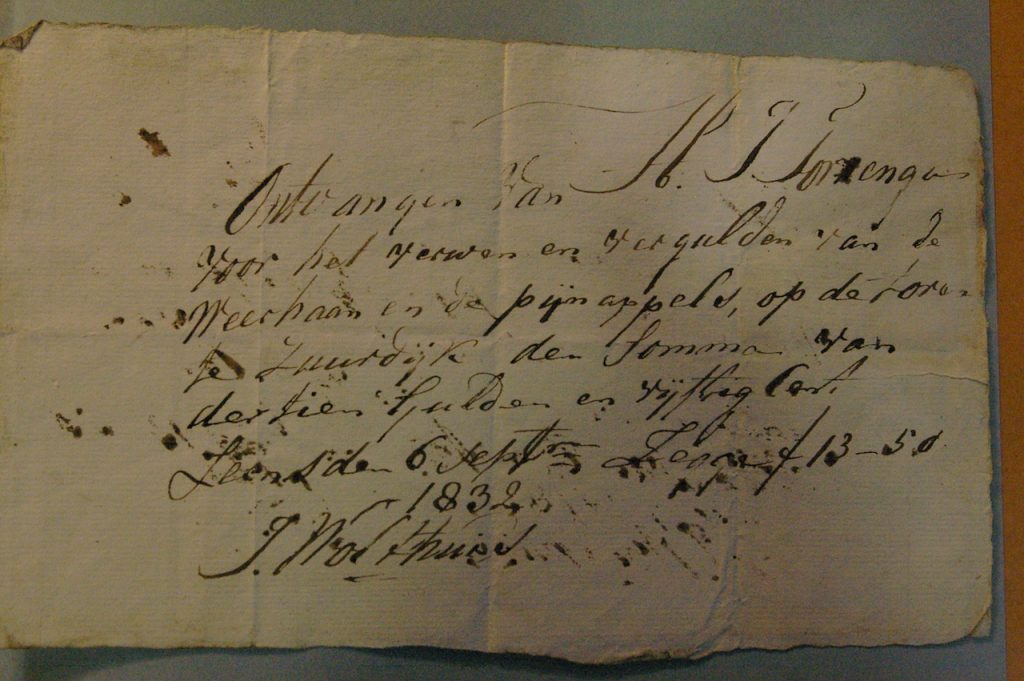 Ontvangen van H. J. Torrenga
voor het verwen en vergulden van de
Weerhaan en de pijnappels, op de toren
te Zuurdijk den Somma van
dertien Gulden en vijftig Cent
Leens den 6 Septr Zegge f. 13-50
1832
J. Wolthuis